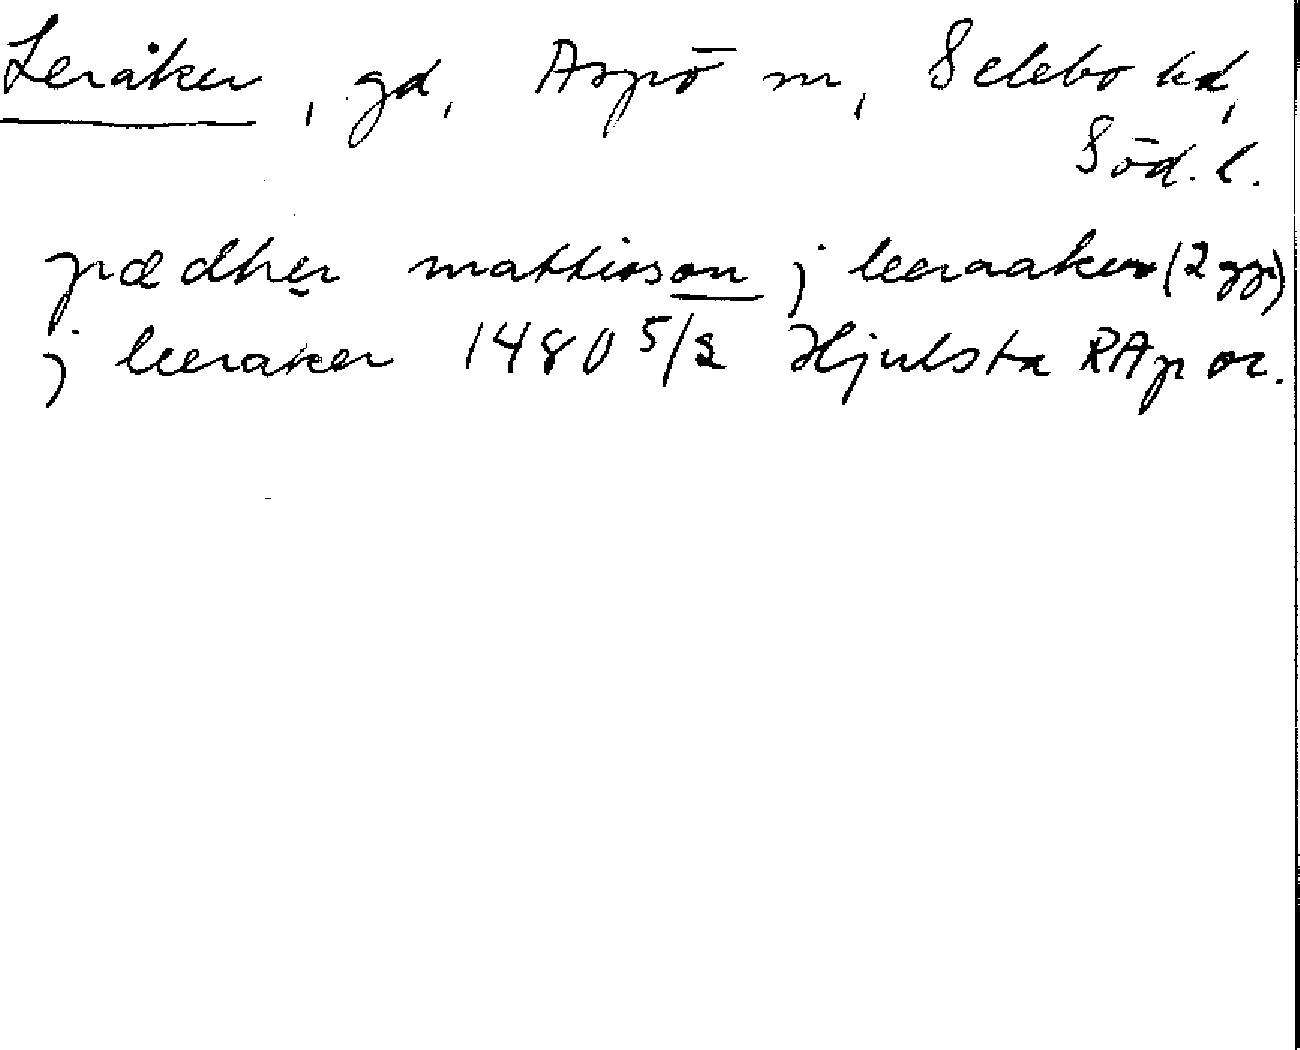 Leråker, gd, Aspö sn, Selebo hd,
Söd. l.
pædher mattisson j leeraaker (2 ggr)
j leeraker 1480 5/2 Hjulsta RAp or.